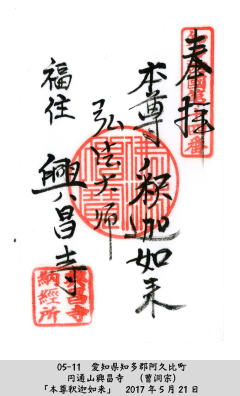 奉拝
本尊 釈迦如来
弘法大師
福住 興昌寺
興昌寺
納経所
05-11 愛知県知多郡阿久比町
円通山興昌寺 (曹洞宗)
「本尊釈迦如来」 2017年5月21日